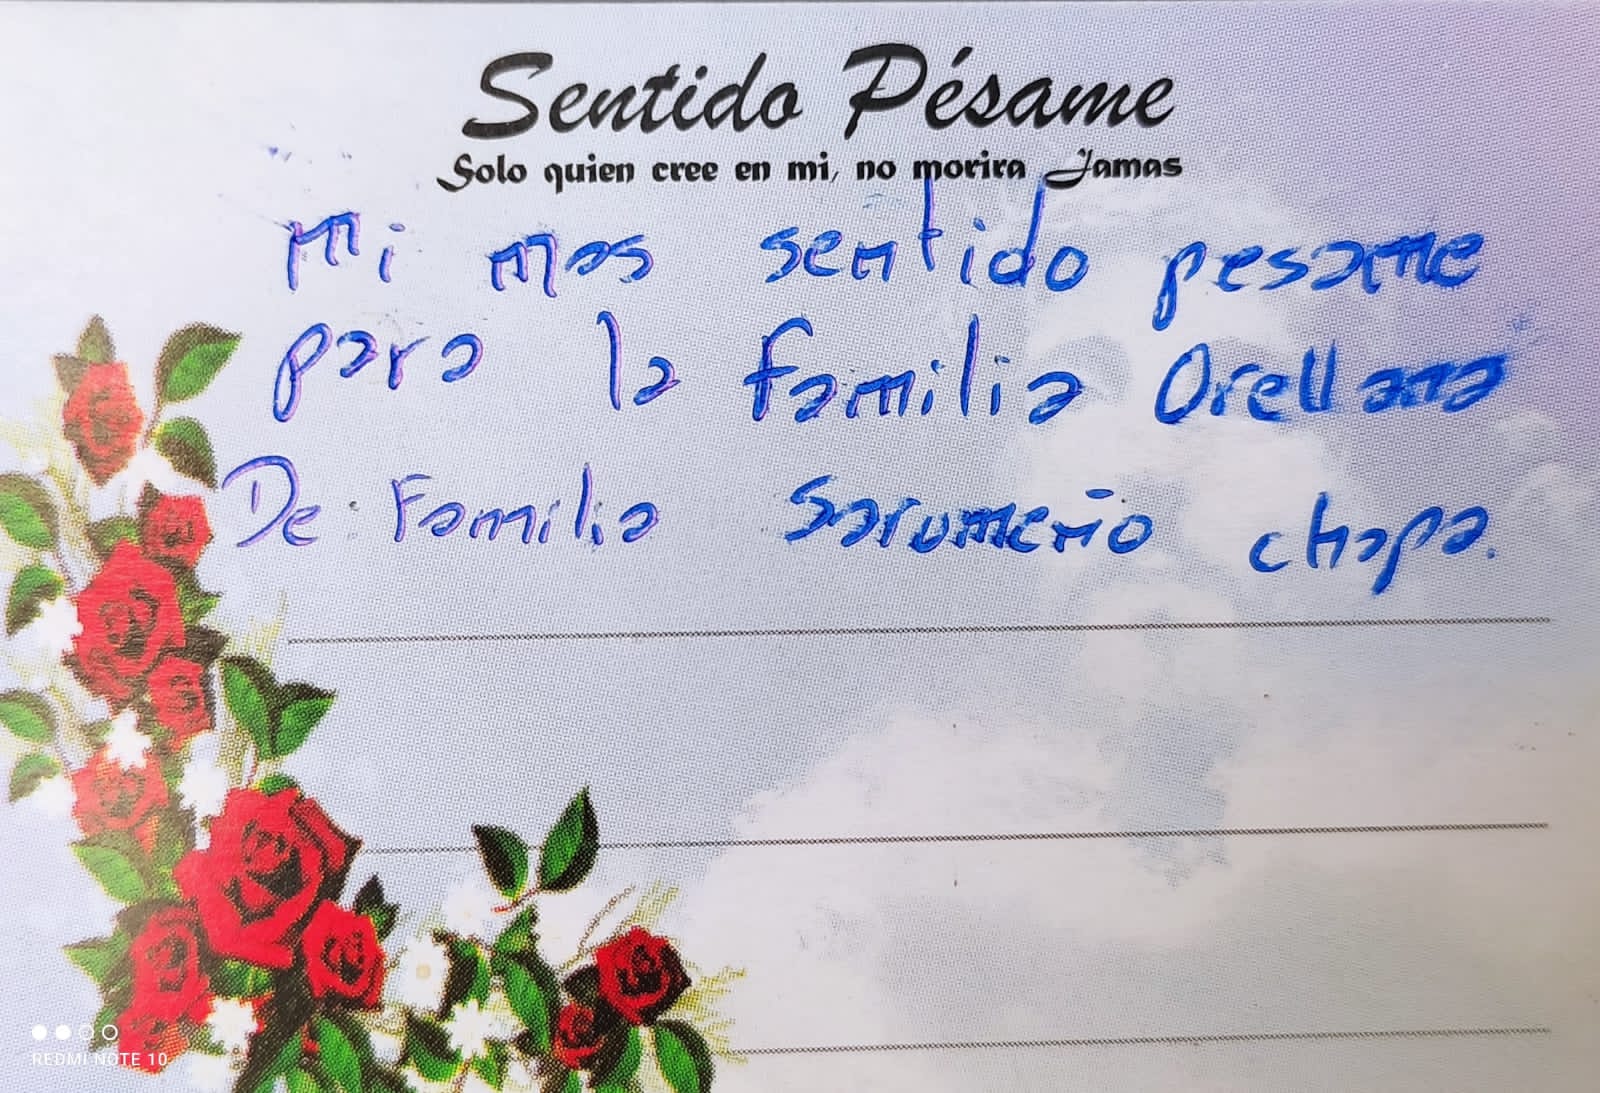 Sentido Pésame
Solo quien cree en mi, no morira Jamas
Mi mas sentido pesame
para la familia Orellana
De: Familia Sarumeño chapa.
REDMI NOTE 10